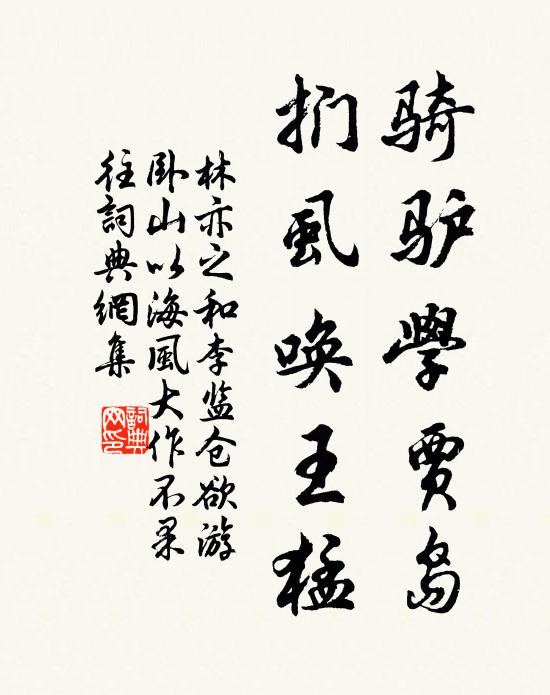 骑驴学贾岛
扪虱唤王猛
林亦之和李监仓欲游
卧山以海风大作不果
往词典网集
词典网印